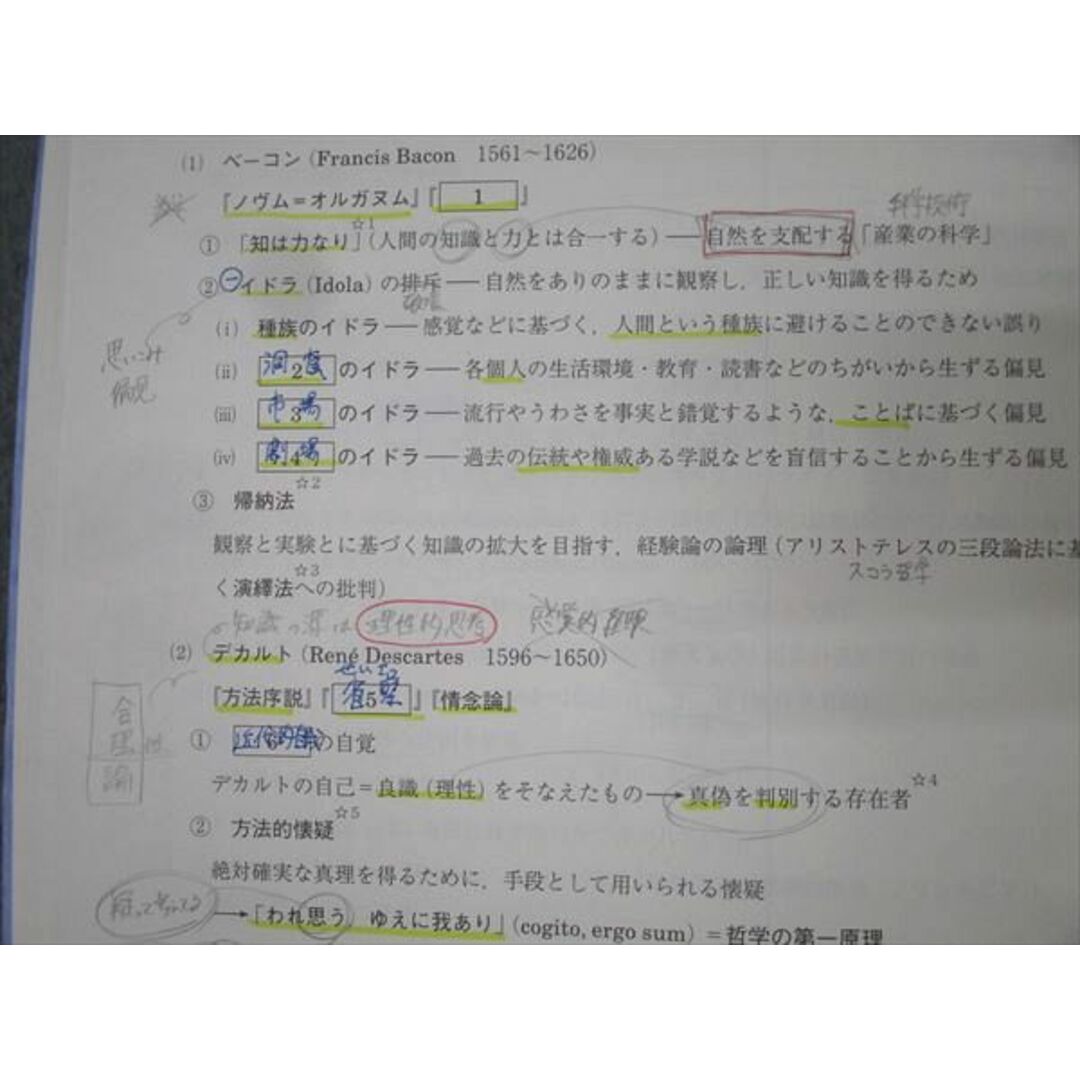 (1) ベーコン (Francis Bacon 1561～1626)
『ノヴム＝オルガヌム』『 1 』
科学技術
① 「知は力なり」☆1 (人間の知識と力とは合一する) ── 自然を支配する「産業の科学」
② イドラ (Idola) の排斥 ── 自然をありのままに観察し，正しい知識を得るため
(i) 種族のイドラ ── 感覚などに基づく，人間という種族に避けることのできない誤り
思いこみ
偏見
(ii) 洞窟 2 のイドラ ── 各個人の生活環境・教育・読書などのちがいから生ずる偏見
(iii) 市場 3 のイドラ ── 流行やうわさを事実と錯覚するような，ことばに基づく偏見
(iv) 劇場 4 のイドラ ── 過去の伝統や権威ある学説などを盲信することから生ずる偏見
③ 帰納法☆2
観察と実験とに基づく知識の拡大を目指す，経験論の論理 (アリストテレスの三段論法に基
スコラ哲学
く演繹法☆3への批判)
知識の源は 理性的思考 感覚的経験
(2) デカルト (René Descartes 1596～1650)
せいさつ
『方法序説』『省察 5 』『情念論』
合理論
① の自覚
デカルトの自己＝良識 (理性) をそなえたもの ─→ 真偽を判別する存在者☆4
② 方法的懐疑☆5
絶対確実な真理を得るために，手段として用いられる懐疑
─→「われ思う ゆえに我あり」(cogito, ergo sum) ＝哲学の第一原理